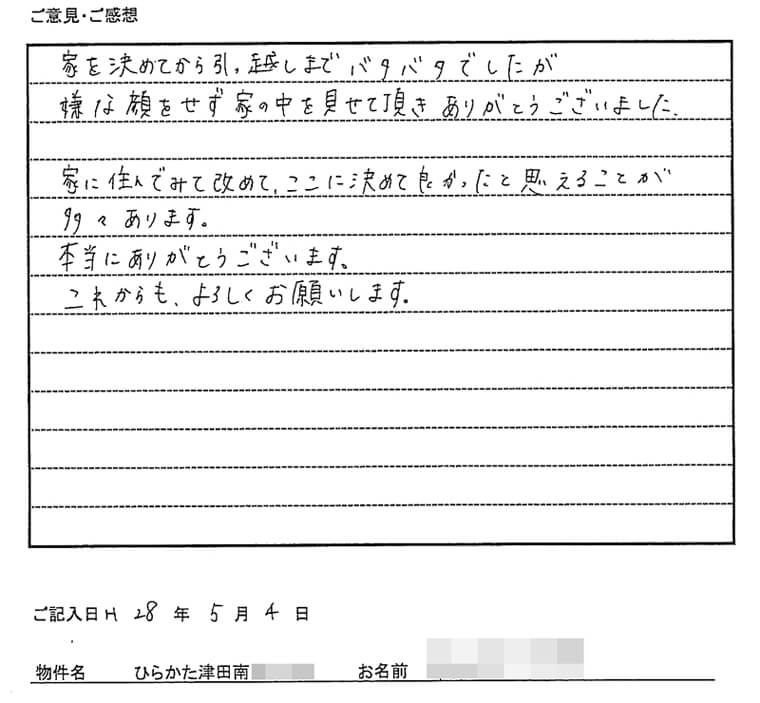 ご意見・ご感想
家を決めてから引っ越しまでバタバタでしたが
嫌な顔をせず家の中を見せて頂きありがとうございました。
家に住んでみて改めて、ここに決めて良かったと思えることが
多々あります。
本当にありがとうございます。
これからも、よろしくお願いします。
ご記入日 H 28 年 5 月 4 日
物件名 ひらかた津田南 お名前